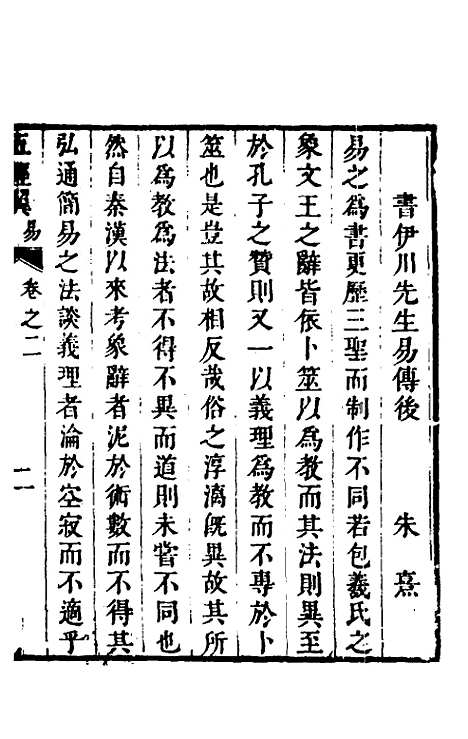 書伊川先生易傳後　朱熹
易之為書更歷三聖而制作不同若包羲氏之
象文王之辭皆依卜筮以為教而其法則異至
於孔子之贊則又一以義理為教而不專於卜
筮也是豈其故相反哉俗之淳漓旣異故其所
以為教為法者不得不異而道則未嘗不同也
然自秦漢以來考象辭者泥於術數而不得其
弘通簡易之法談義理者淪於空寂而不適乎
五經 易 卷之二 二